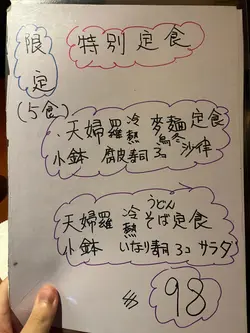 限定
特別定食
(5食)
天婦羅 冷 熱 麥麵定食 烏冬
小鉢 腐皮寿司 3コ 沙律
うどん
天婦羅 冷 熱 そば定食
小鉢 いなり寿司 3コ サラダ
98